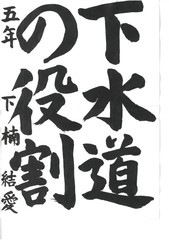 下水道
の役割
五年 下楠結愛